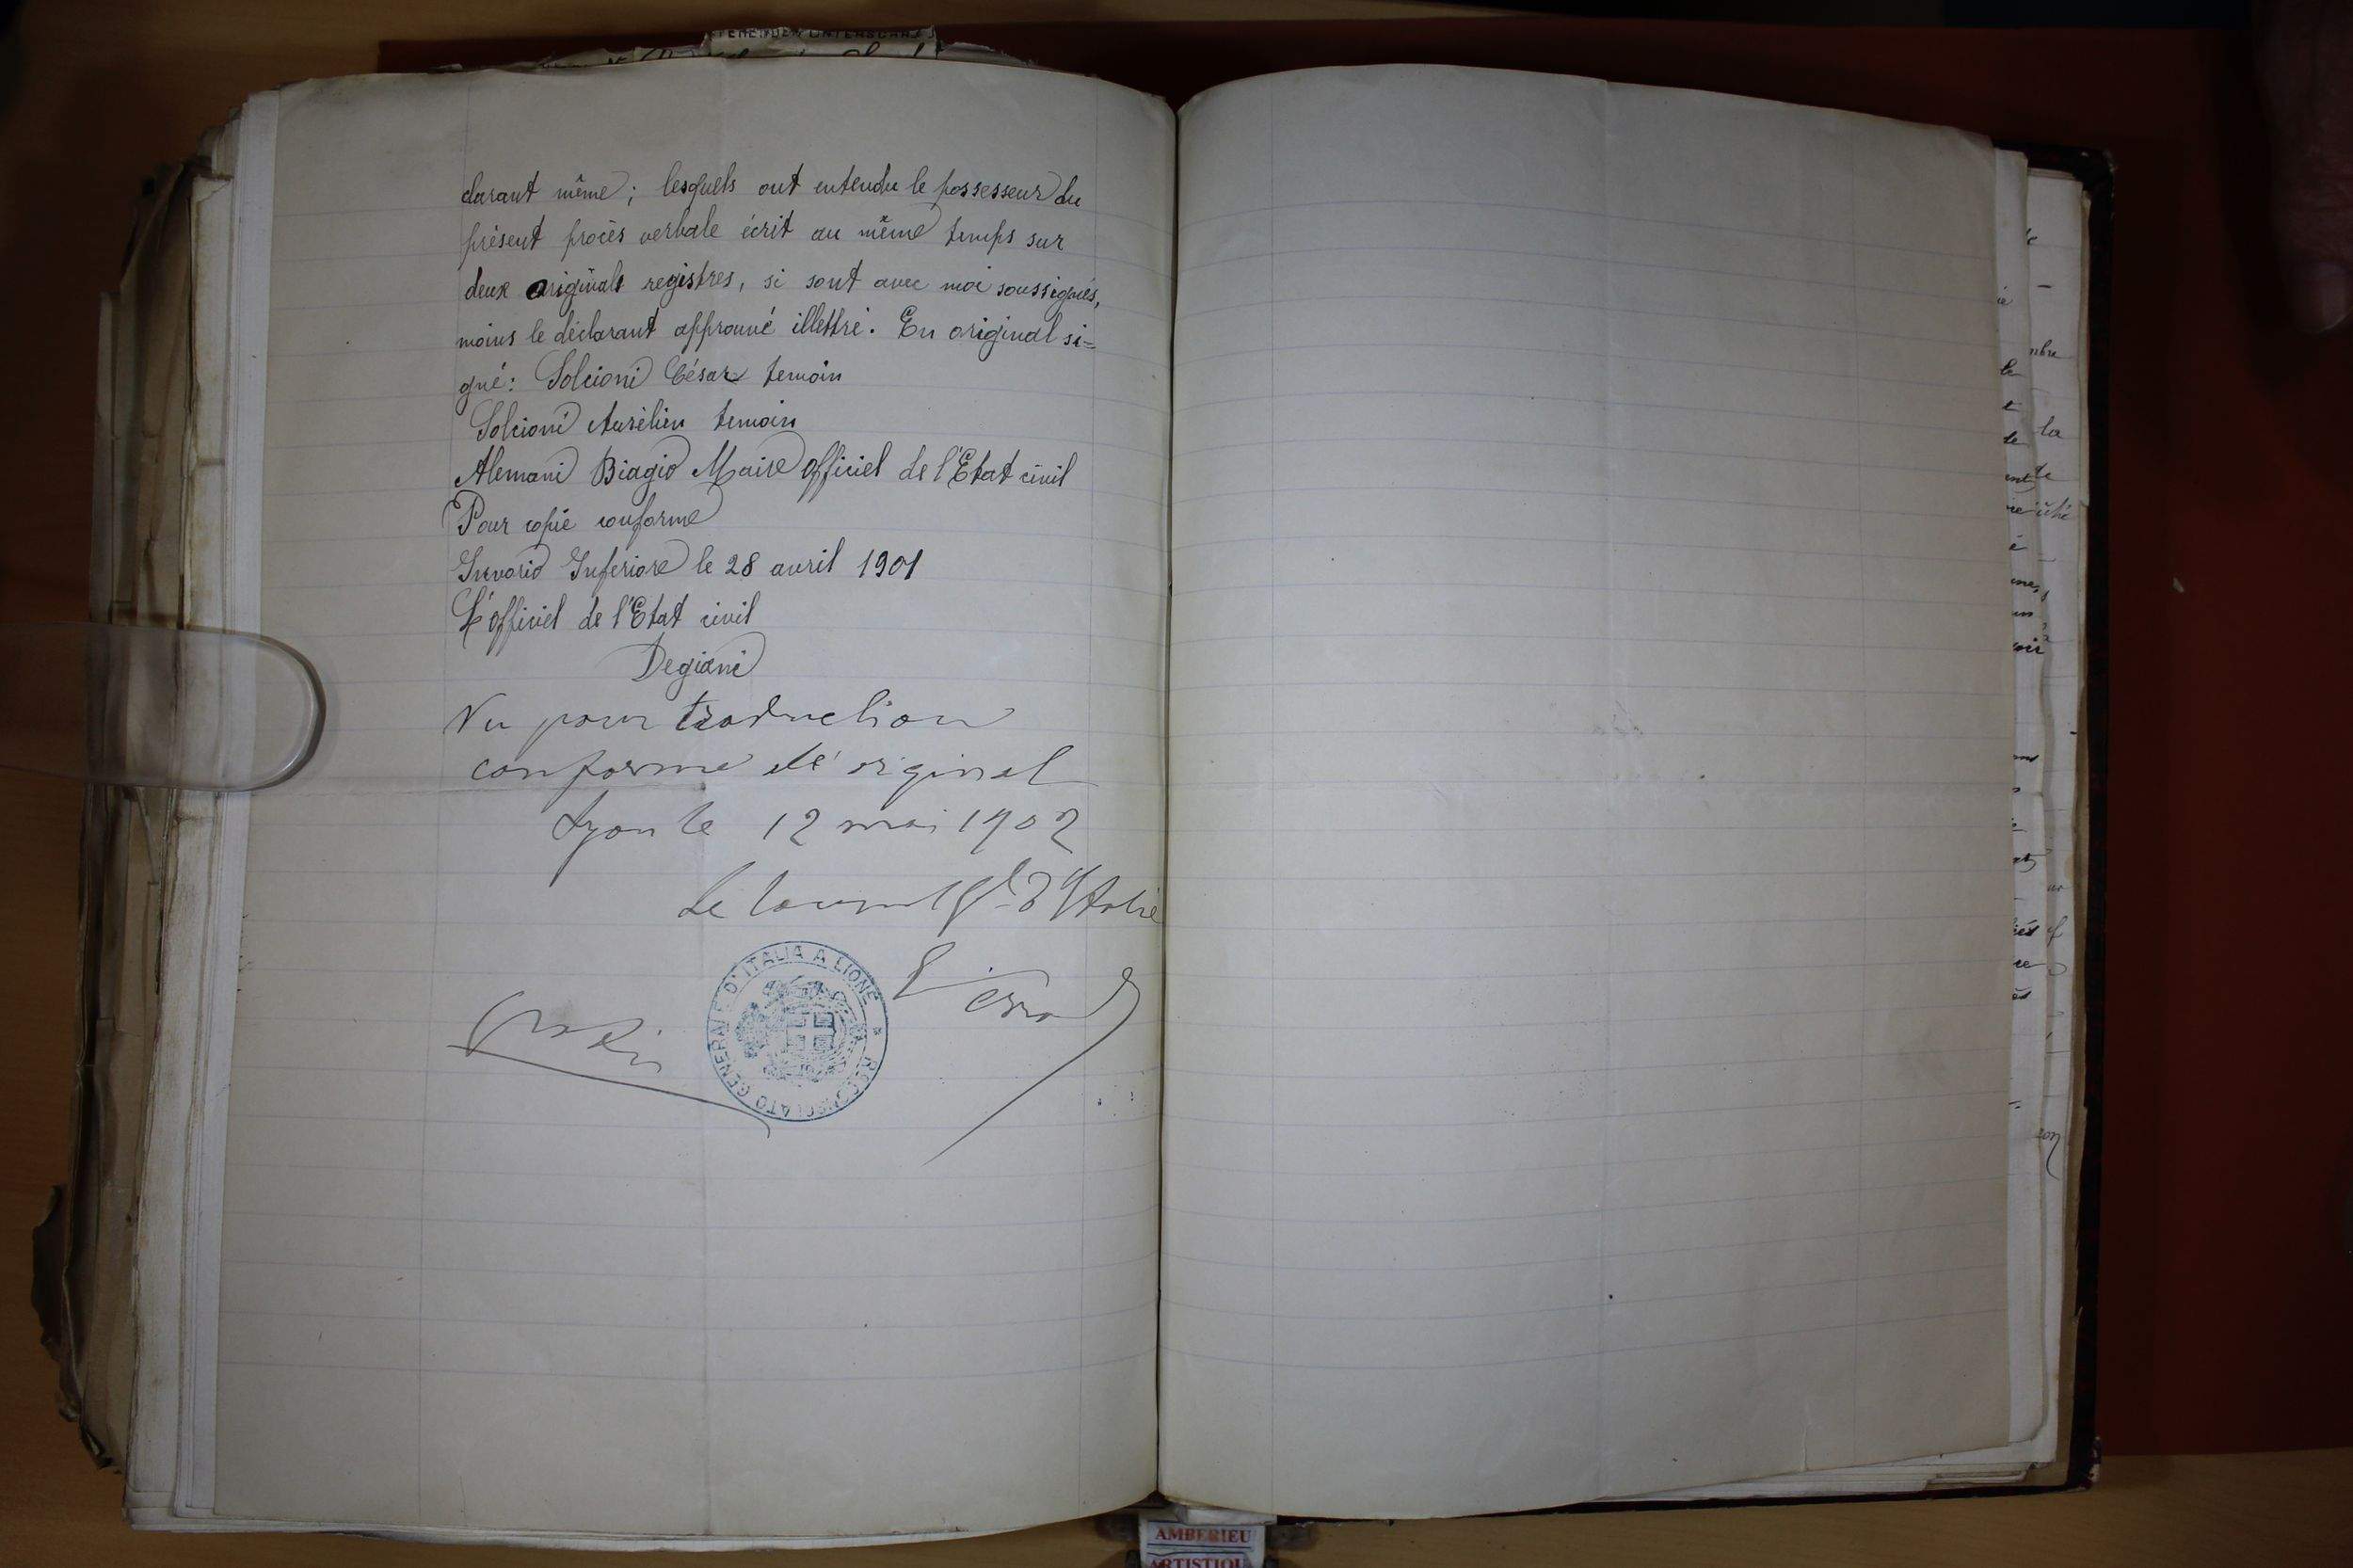 clarant même; lesquels ont entendu le possesseur du
présent procès verbale écrit au même temps sur
deux originals registres, si sont avec moi soussignés,
moins le déclarant approuvé illettré. En original si=
gné: Solcioni César temoin
Solcioni Aurélien temoin
Alemani Biagio Maire officiel de l'Etat civil
Pour copie conforme
Inferiore le 28 avril 1901
L'officiel de l'Etat civil
Degiani
Vu pour traduction
conforme à l'original
Lyon le 12 mai 1902
Le d'Italie
R. CONSOLATO GENERALE D'ITALIA A LIONE
AMBERIEU
ARTISTIQU